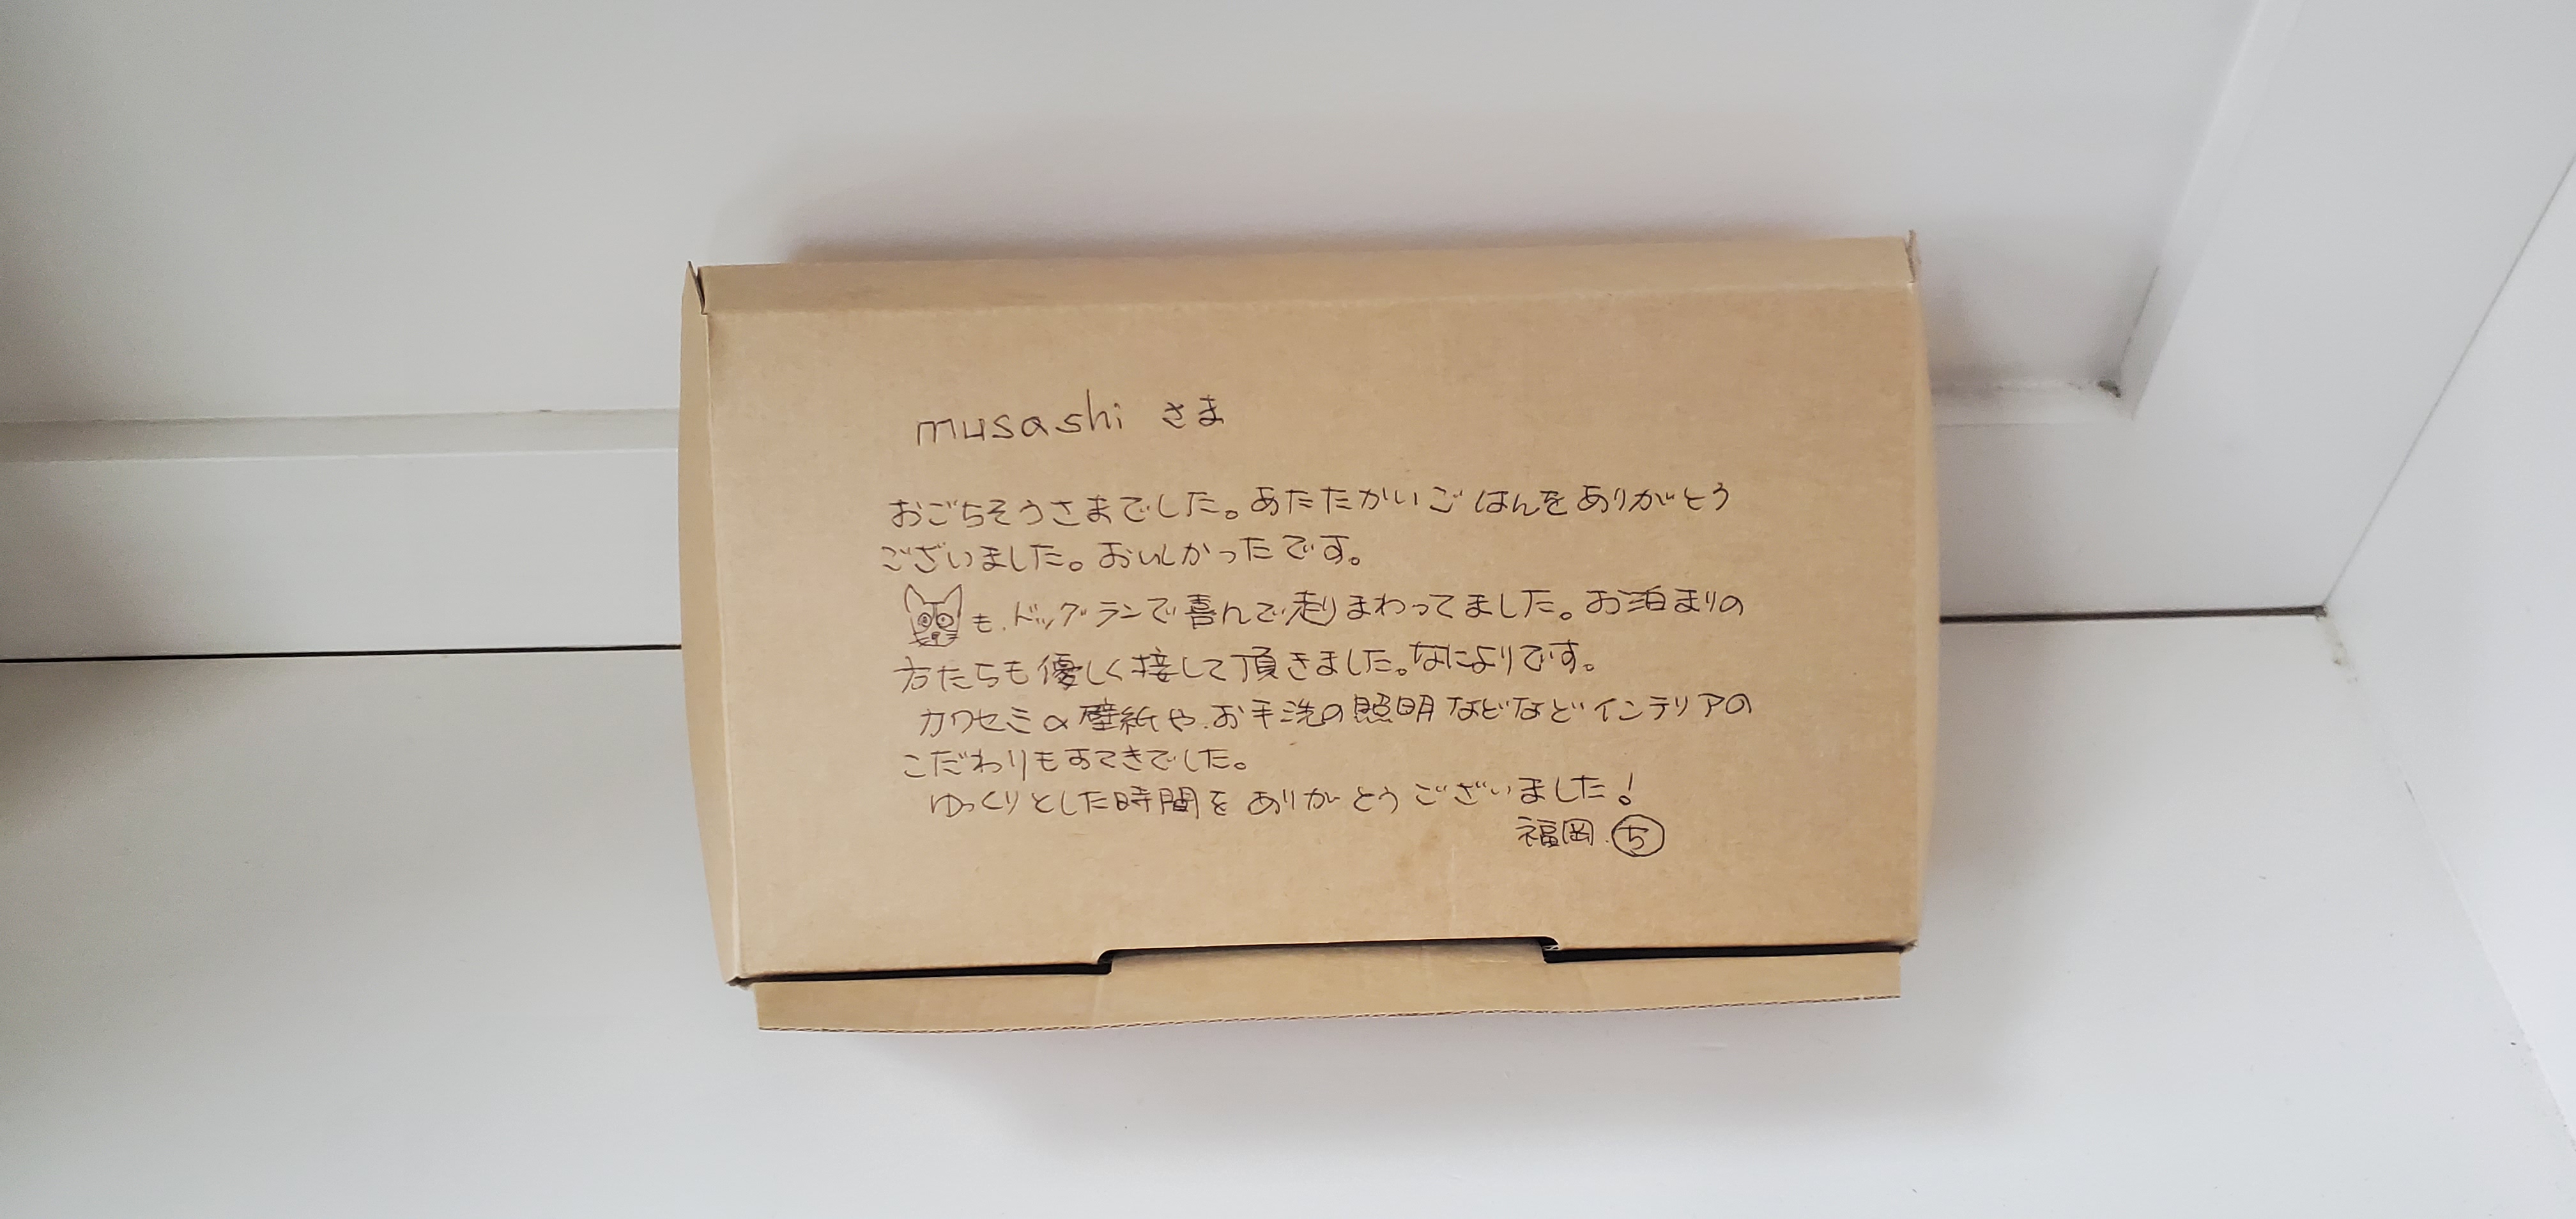 musashi さま
おごちそうさまでした。あたたかいごはんをありがとう
ございました。おいしかったです。
も、ドッグランで喜んで走りまわってました。お泊まりの
方たちも優しく接して頂きました。なによりです。
カワセミの壁紙や、お手洗の照明などなどインテリアの
こだわりもすてきでした。
ゆっくりとした時間をありがとうございました!
福岡.ち